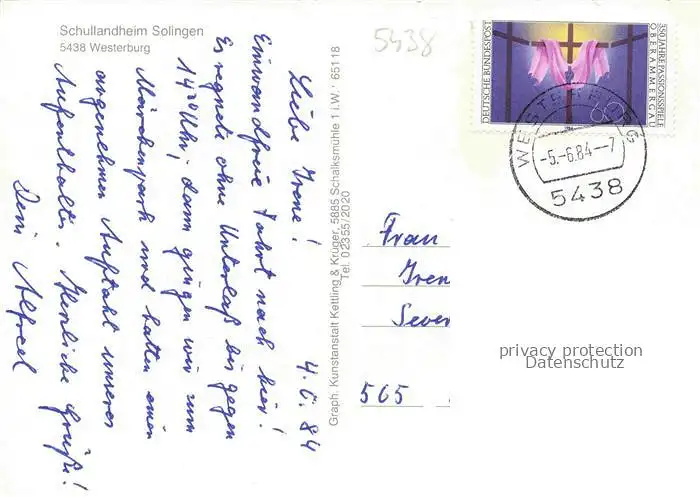 Schullandheim Solingen
5438 Westerburg
5438
Liebe Irene! 4.6.84
Einwandfreie Fahrt nach hier!
Es regnete ohne Unterlaß bis gegen
14³⁰ Uhr, dann gingen wir zum
Märchenpark und hatten einen
angenehmen Auftakt unseres
Aufenthaltes. Herzliche Grüße!
Dein Alfred
Graph. Kunstanstalt Kettling & Krüger, 5885 Schalksmühle 1 i.W. 65118
Tel. 02355/2020
DEUTSCHE BUNDESPOST
60
550 JAHRE PASSIONSSPIELE
OBERAMMERGAU
WESTERBURG
-5.-6.84--7
5438
Frau
Iren
Seve
565
privacy protection
Datenschutz